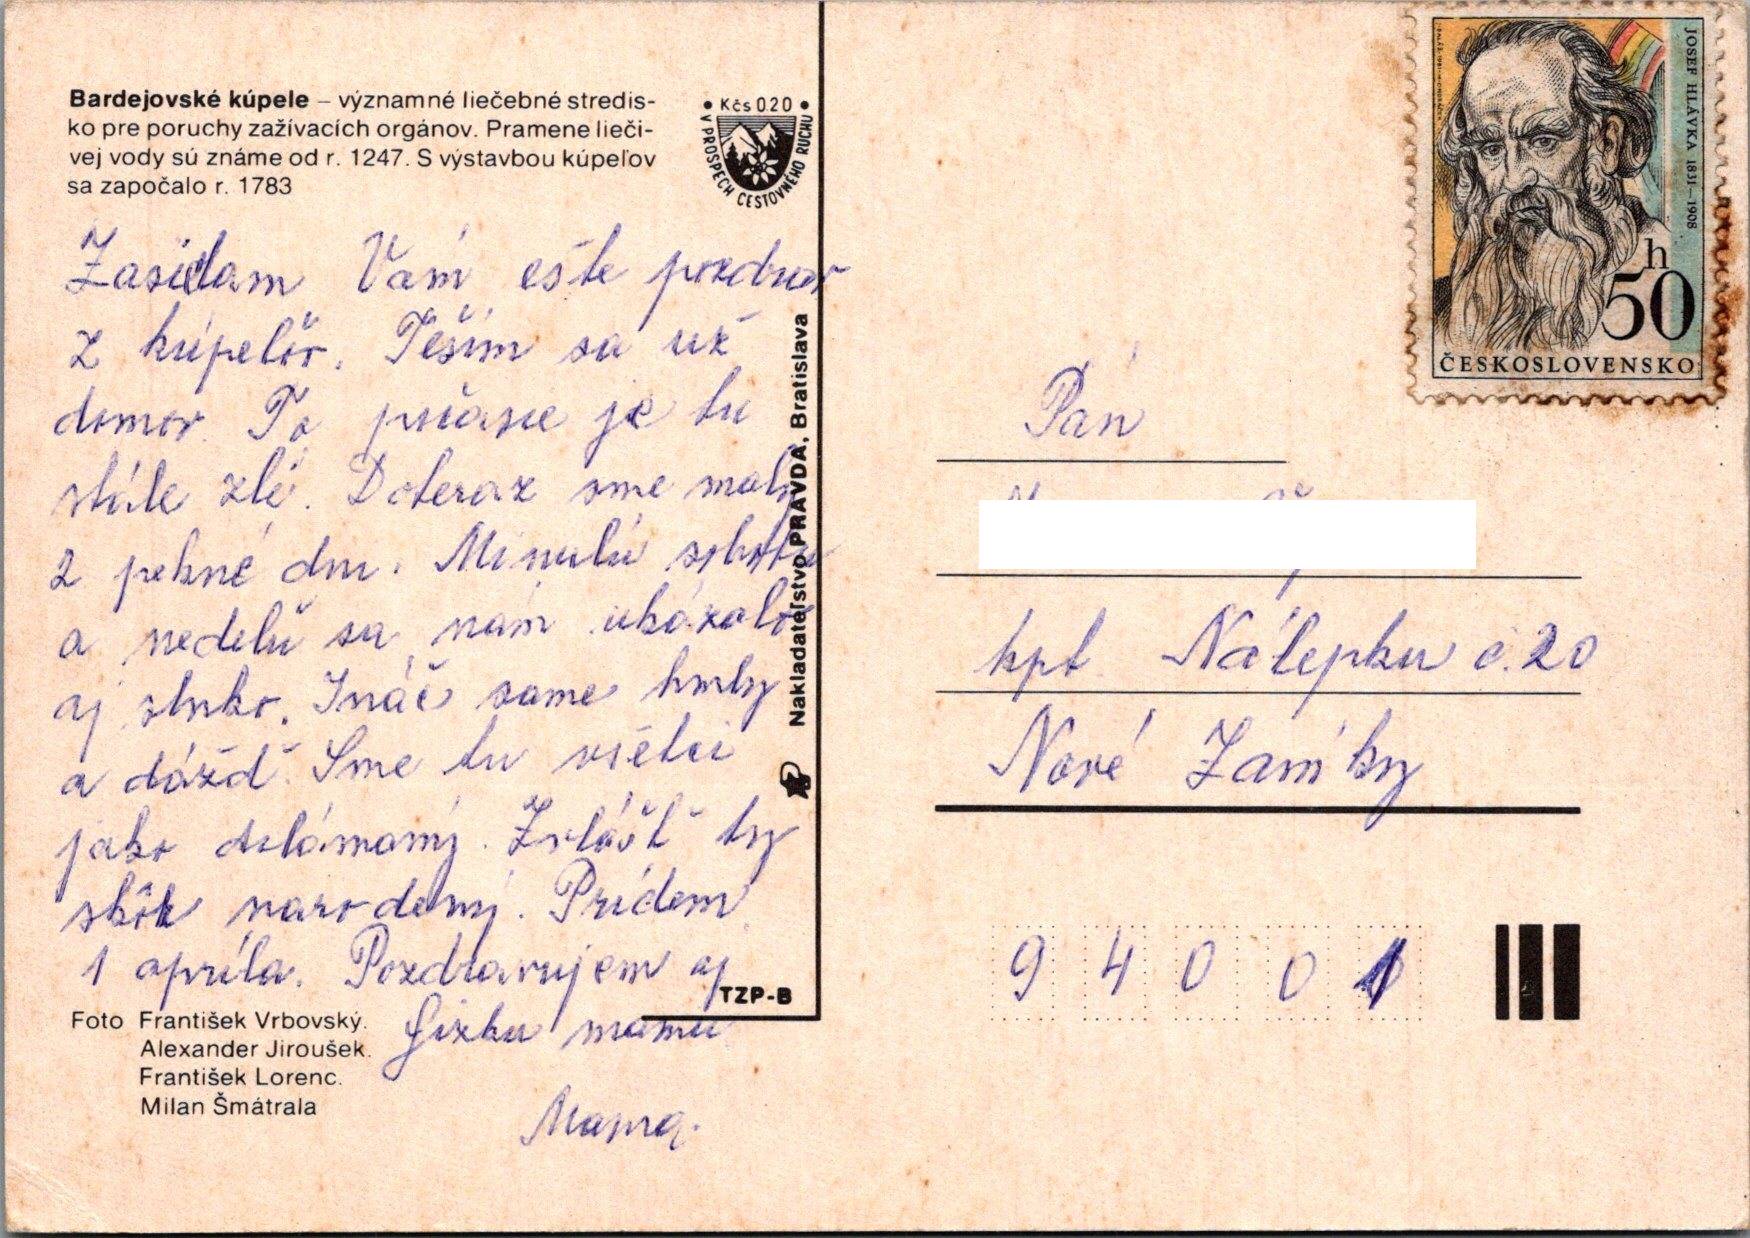 Bardejovské kúpele – významné liečebné stredis-
ko pre poruchy zažívacích orgánov. Pramene lieči-
vej vody sú známe od r. 1247. S výstavbou kúpeľov
sa započalo r. 1783
• Kčs 0.20 •
V PROSPECH CESTOVNÉHO RUCHU
Zasielam Vám ešte pozdrav
z kúpeľov. Teším sa už
domov. To počasie je tu
stále zlé. Doteraz sme maly
2 pekné dni. Minulú sobotu
a nedeľu sa nám ukázalo
aj slnko. Ináč same hmly
a dážď. Sme tu všetci
jako dolámaný. Zvlášť ty
skôr narodený. Prídem
1 apríla. Pozdravujem aj
Gizku mamu
Mama.
Foto František Vrbovský.
Alexander Jiroušek.
František Lorenc.
Milan Šmátrala
TZP-B
Nakladateľstvo PRAVDA, Bratislava
JOSEF HLÁVKA 1831–1908
50 h
ČESKOSLOVENSKO
Pán
kpt Nálepku č. 20
Nové Zámky
9 4 0 0 1